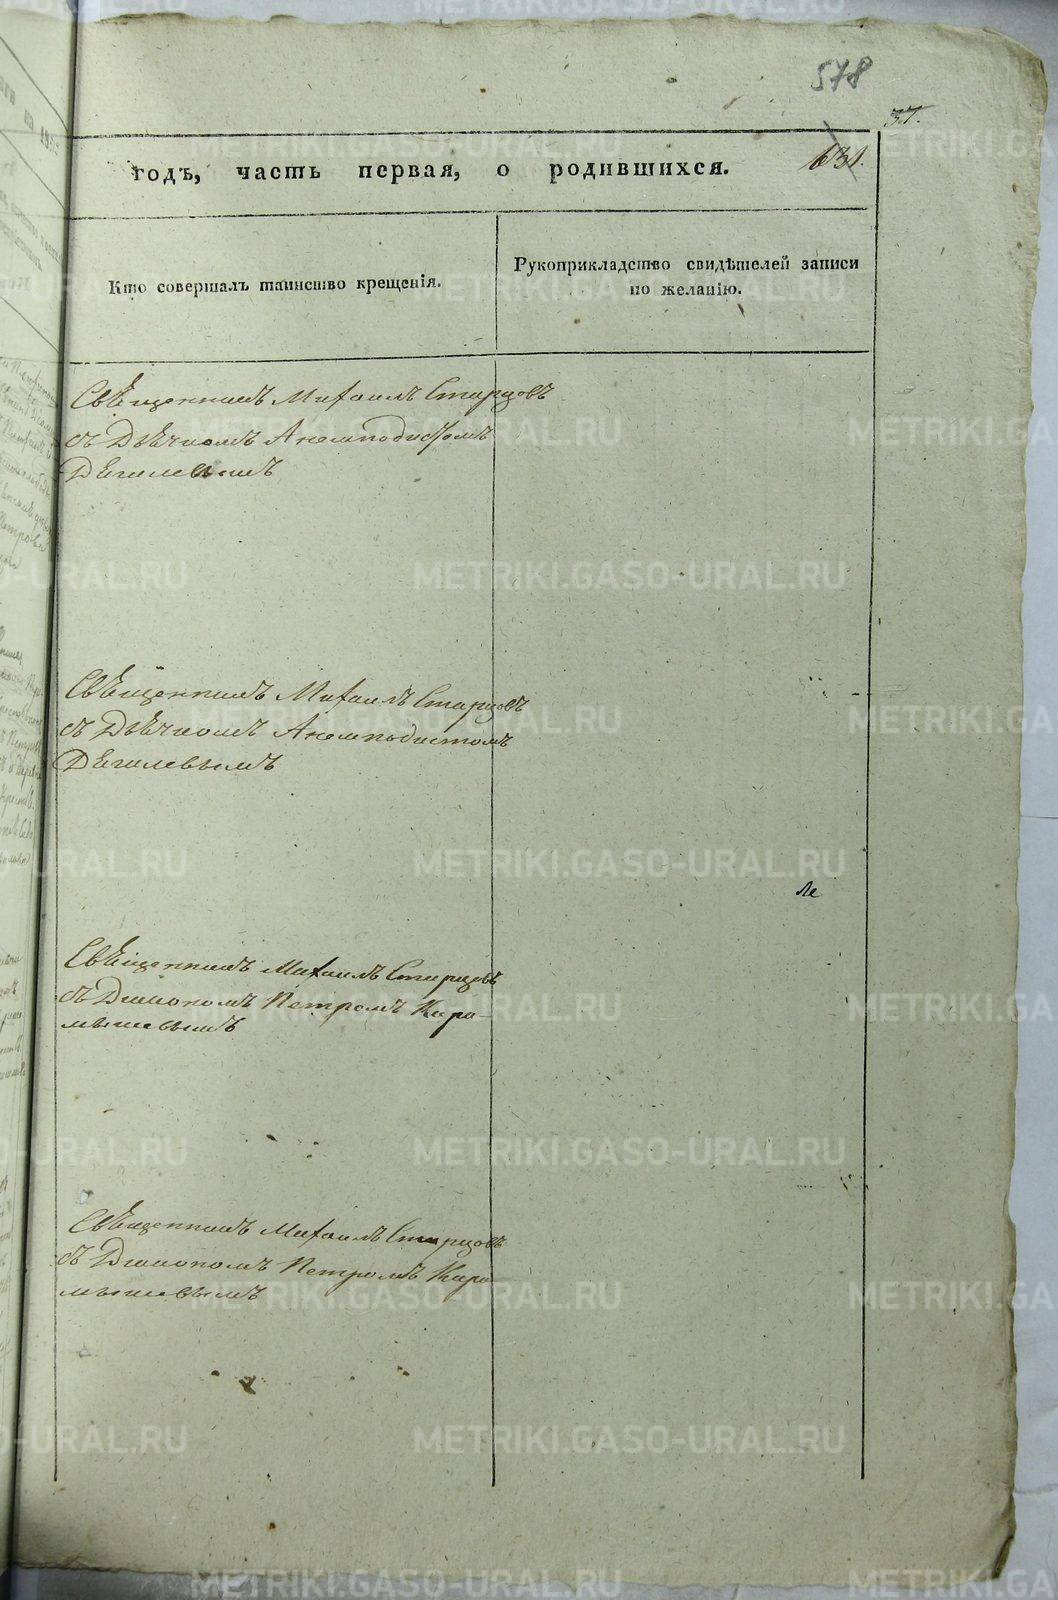 578
37.
631.
годъ, часть первая, о родившихся.
Кто совершалъ таинство крещенія.
Рукоприкладство свидѣтелей записи
по желанію.
Священникъ Михаилъ Старцовъ
съ Дьячкомъ Анемподистомъ
Дягилевымъ
Священникъ Михаилъ Старцовъ
съ Дьячкомъ Анемподистомъ
Дягилевымъ
Священникъ Михаилъ Старцовъ
съ Діакономъ Петромъ Кара-
мышевымъ
Священникъ Михаилъ Старцовъ
съ Діакономъ Петромъ Кара
мышевымъ
METRIKI.GASO-URAL.RU